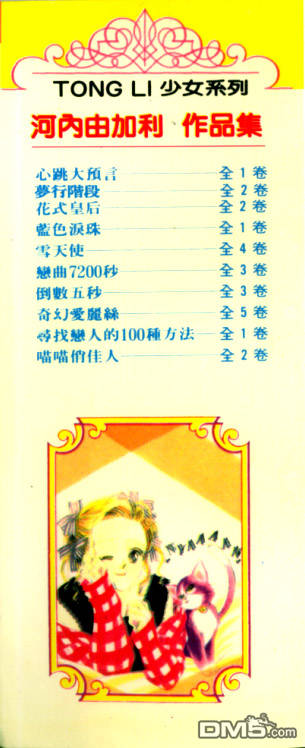 TONG LI 少女系列
河內由加利 作品集
心跳大預言 全1卷
夢行階段 全2卷
花式皇后 全2卷
藍色淚珠 全1卷
雪天使 全4卷
戀曲7200秒 全3卷
倒數五秒 全3卷
奇幻愛麗絲 全5卷
尋找戀人的100種方法 全1卷
喵喵俏佳人 全2卷
NYAAAAN
DM5.com